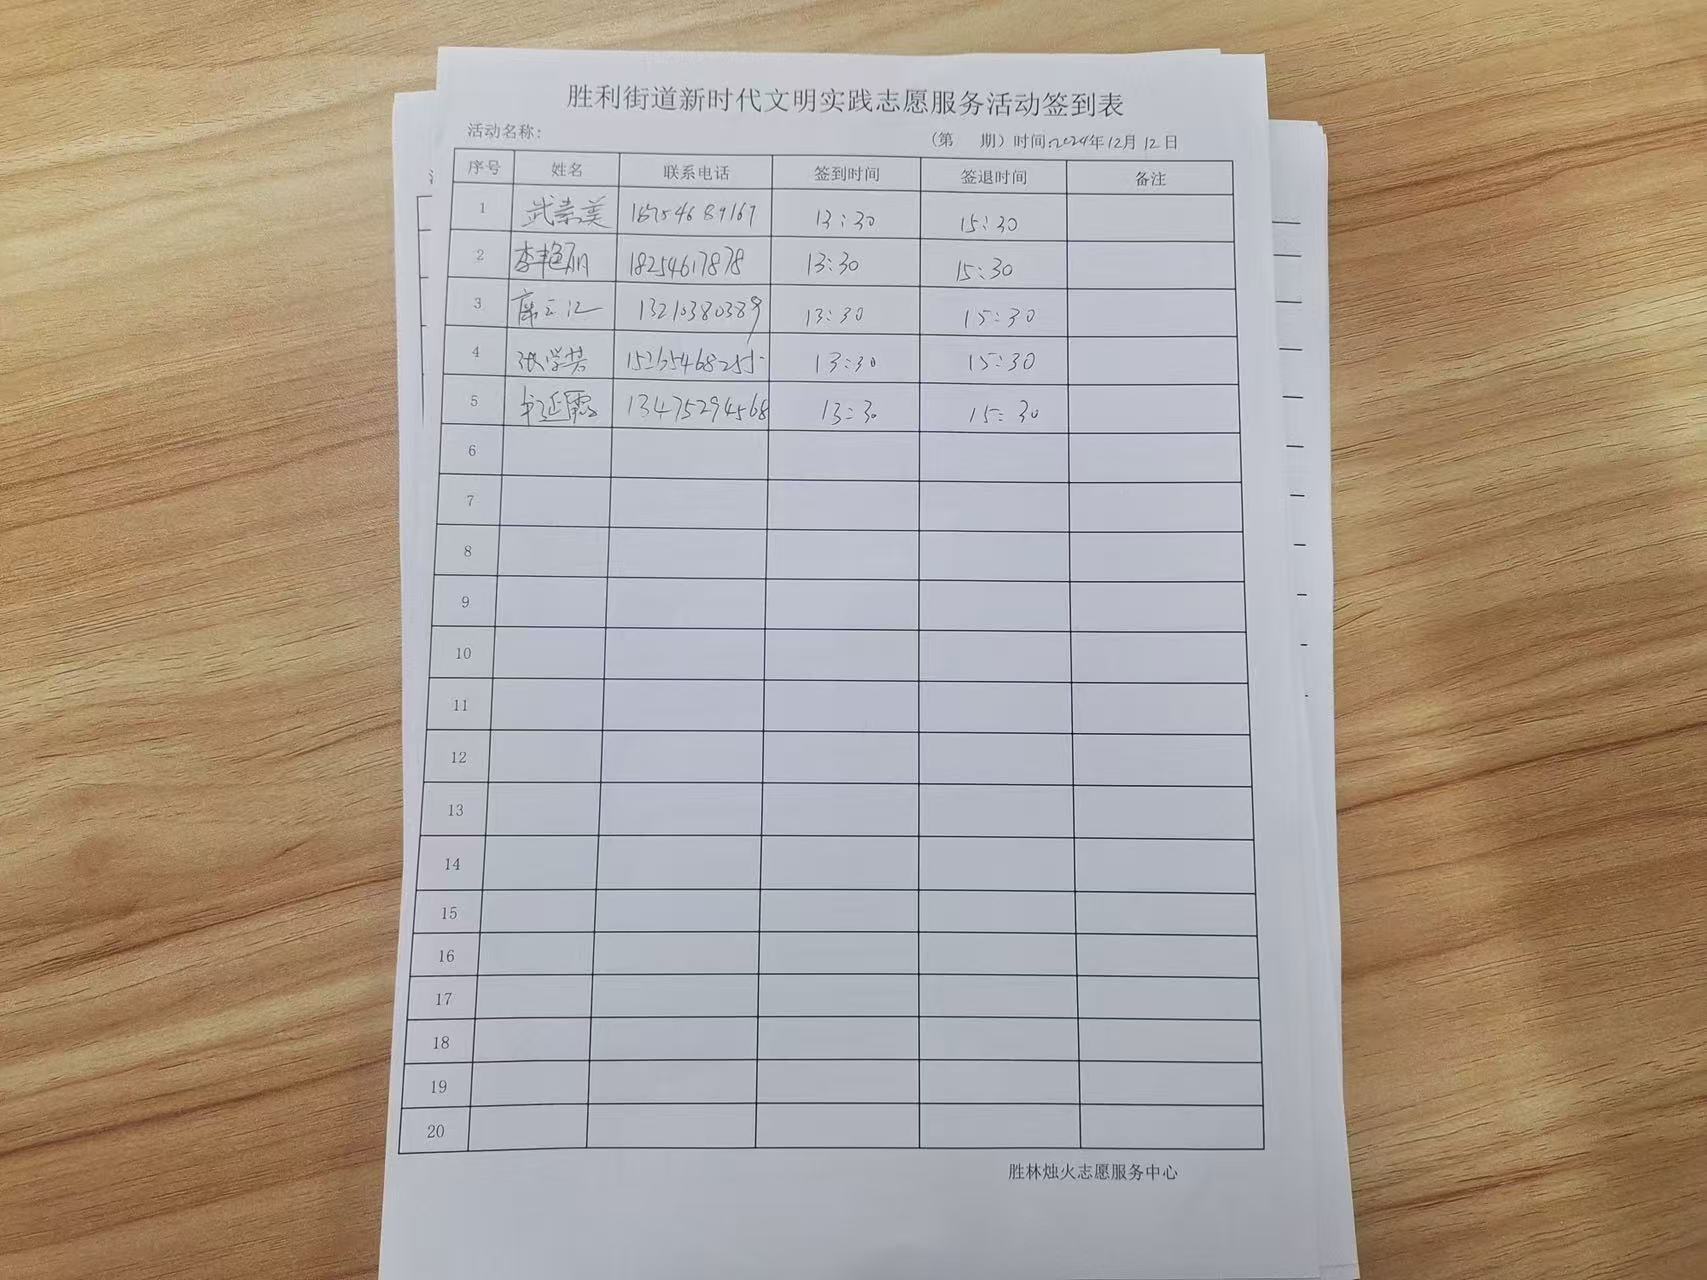 胜利街道新时代文明实践志愿服务活动签到表
活动名称:
(第 期) 时间:2024年12月12日
序号 姓名 联系电话 签到时间 签退时间 备注
1 武崇美 13:30 15:30
2 李艳丽 18254617878 13:30 15:30
3 13210380389 13:30 15:30
4 张学芸 15265468255 13:30 15:30
5 13475294568 13:30 15:30
6
7
8
9
10
11
12
13
14
15
16
17
18
19
20
胜林烛火志愿服务中心